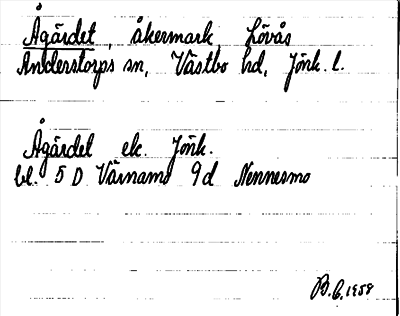 Ågärdet, åkermark Lövås
Anderstorps sn, Västbo hd, Jönk. l.
Ågärdet ek. Jönk.
bl. 5 D Värnamo 9d Nennesmo
B.G. 1958